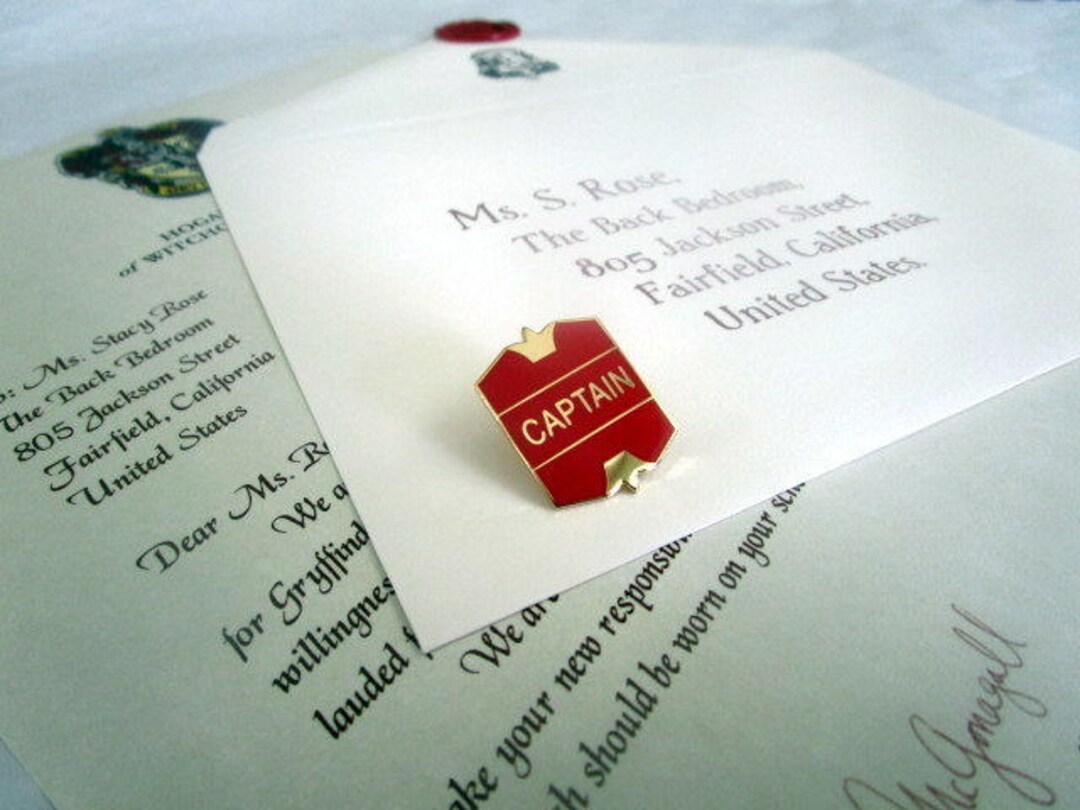 HOGWA
of WITCHC
o: Ms. Stacy Rose
The Back Bedroom
805 Jackson Street
Fairfield, California
United States
Dear Ms. Ro
We a
for Gryffind
willingnes
lauded f
We are
ake your new responsib
h should be worn on your sch
McGonagall
Ms. S. Rose,
The Back Bedroom,
805 Jackson Street,
Fairfield, California,
United States.
CAPTAIN